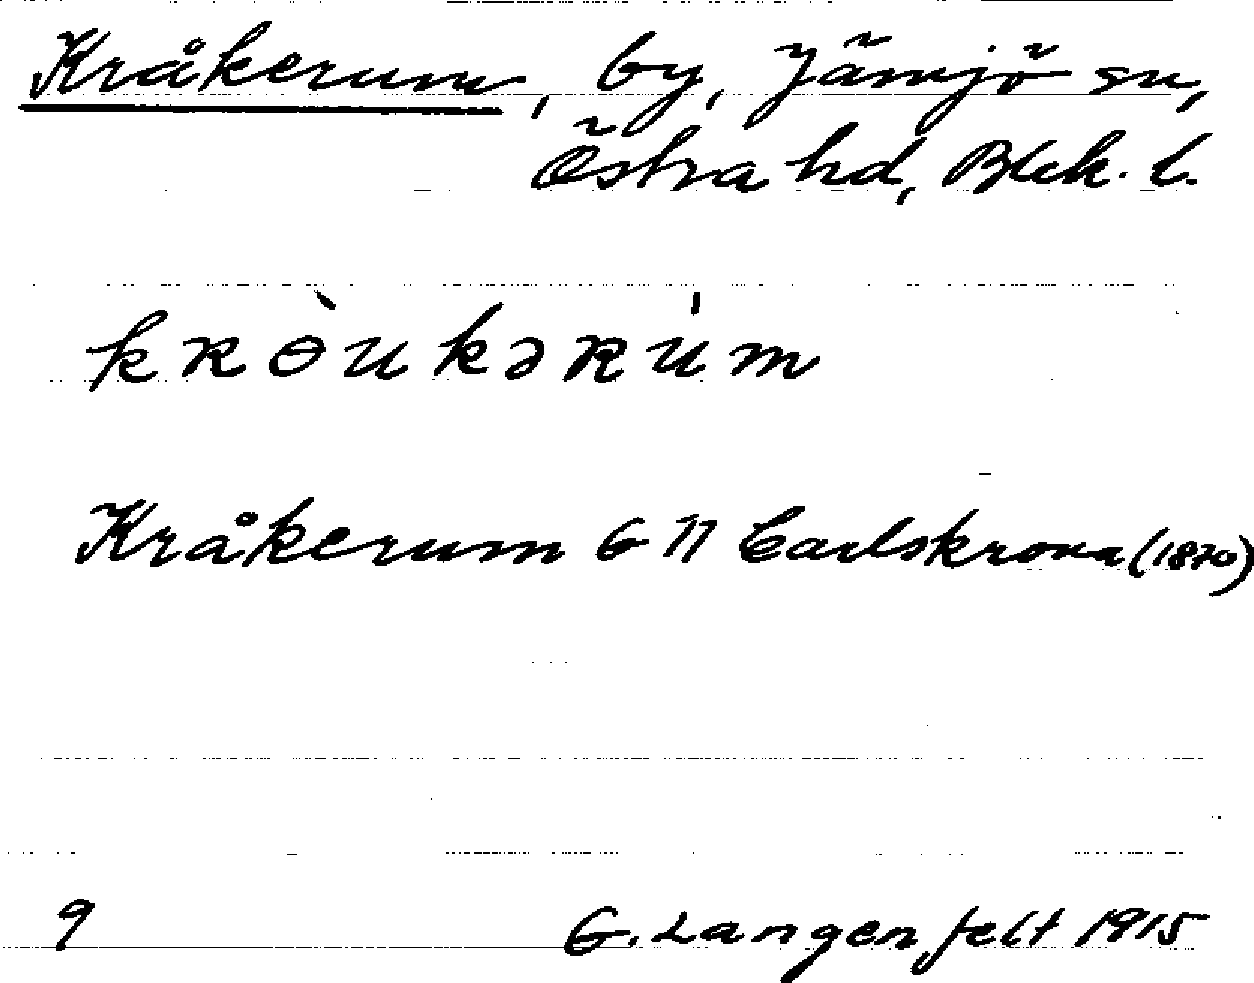 Kråkerum, by, Jämjö sn,
Östra hd, Blek. l.
kʀɵ̀ukəʀúm
Kråkerum G 71 Carlskrona (1870)
9 G. Langenfelt 1915